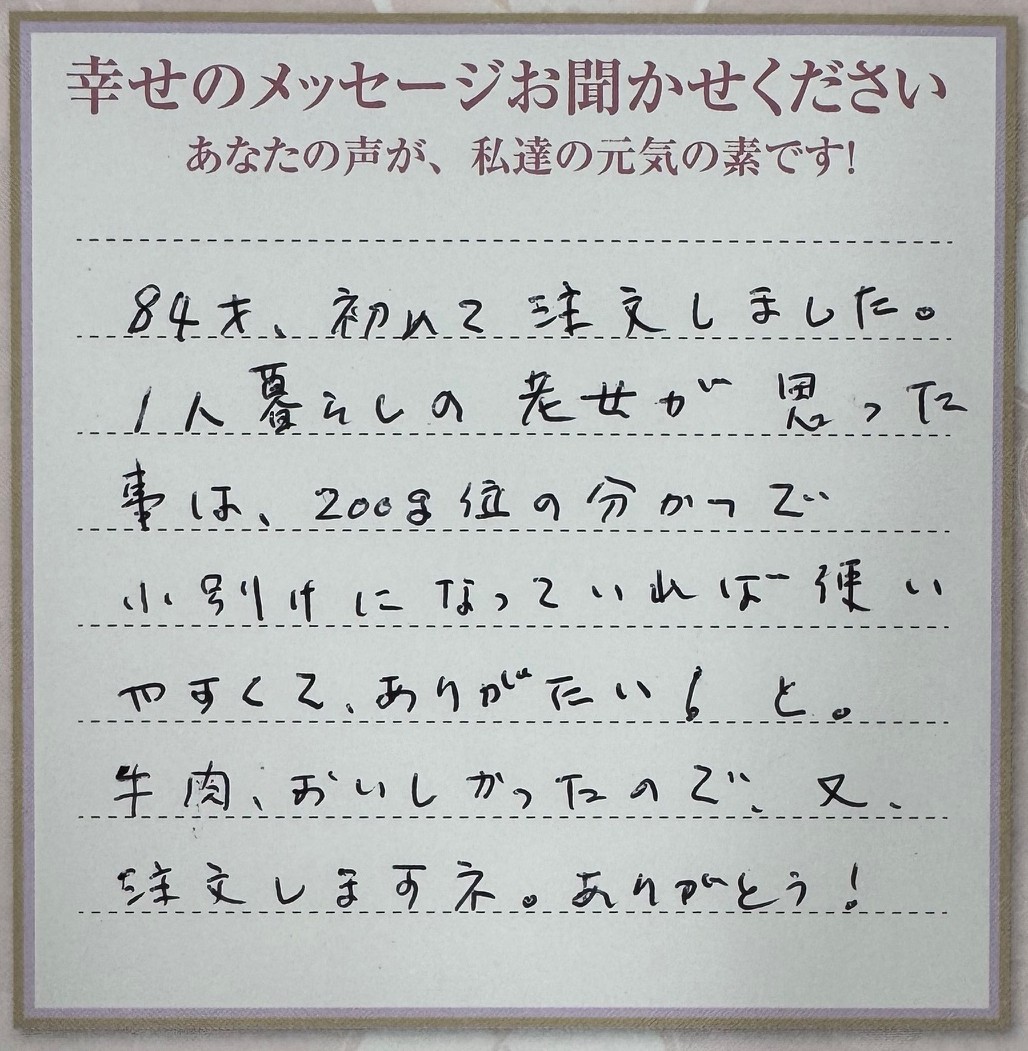 幸せのメッセージお聞かせください
あなたの声が、私達の元気の素です!
84才、初めて注文しました。
1人暮らしの老女が思った
事は、200g位の分かつで
小別けになっていれば便い
やすくて、ありがたい! と。
牛肉、おいしかったので、又、
注文しますネ。ありがとう!